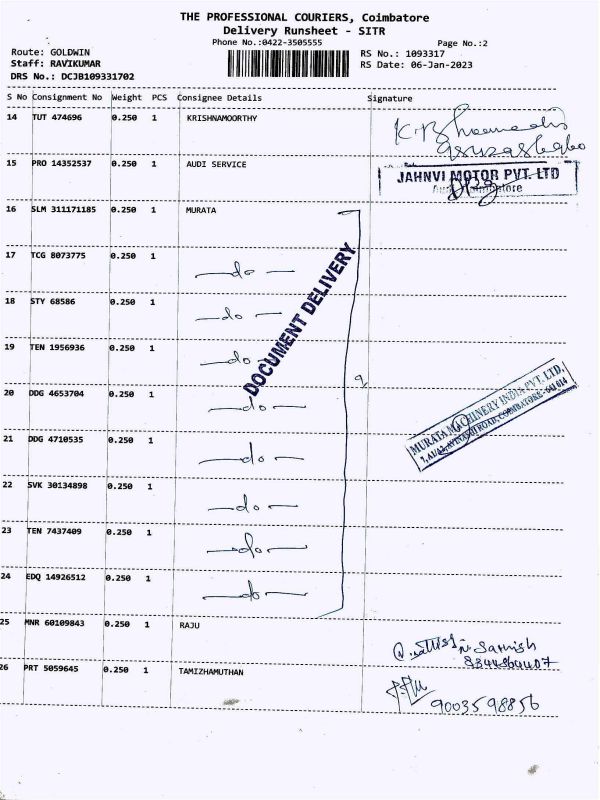 THE PROFESSIONAL COURIERS, Coimbatore
Delivery Runsheet - SITR
Phone No.:0422-3505555 Page No.:2
Route: GOLDWIN RS No.: 1093317
Staff: RAVIKUMAR RS Date: 06-Jan-2023
DRS No.: DCJB109331702
S No Consignment No Weight PCS Consignee Details Signature
14 TUT 474696 0.250 1 KRISHNAMOORTHY
15 PRO 14352537 0.250 1 AUDI SERVICE
JAHNVI MOTOR PVT. LTD
16 SLM 311171185 0.250 1 MURATA
17 TCG 8073775 0.250 1 —do—
18 STY 68586 0.250 1 —do—
DOCUMENT DELIVERY
19 TEN 1956936 0.250 1 —do—
20 DDG 4653704 0.250 1 —do—
9
MURATA MACHINERY INDIA PVT. LTD,
ROAD, COIMBATORE - 641 014
21 DDG 4710535 0.250 1 —do—
22 SVK 30134898 0.250 1 —do—
23 TEN 7437409 0.250 1 —do—
24 EDQ 14926512 0.250 1 —do—
25 MNR 60109843 0.250 1 RAJU
26 PRT 5059645 0.250 1 TAMIZHAMUTHAN
9003598856